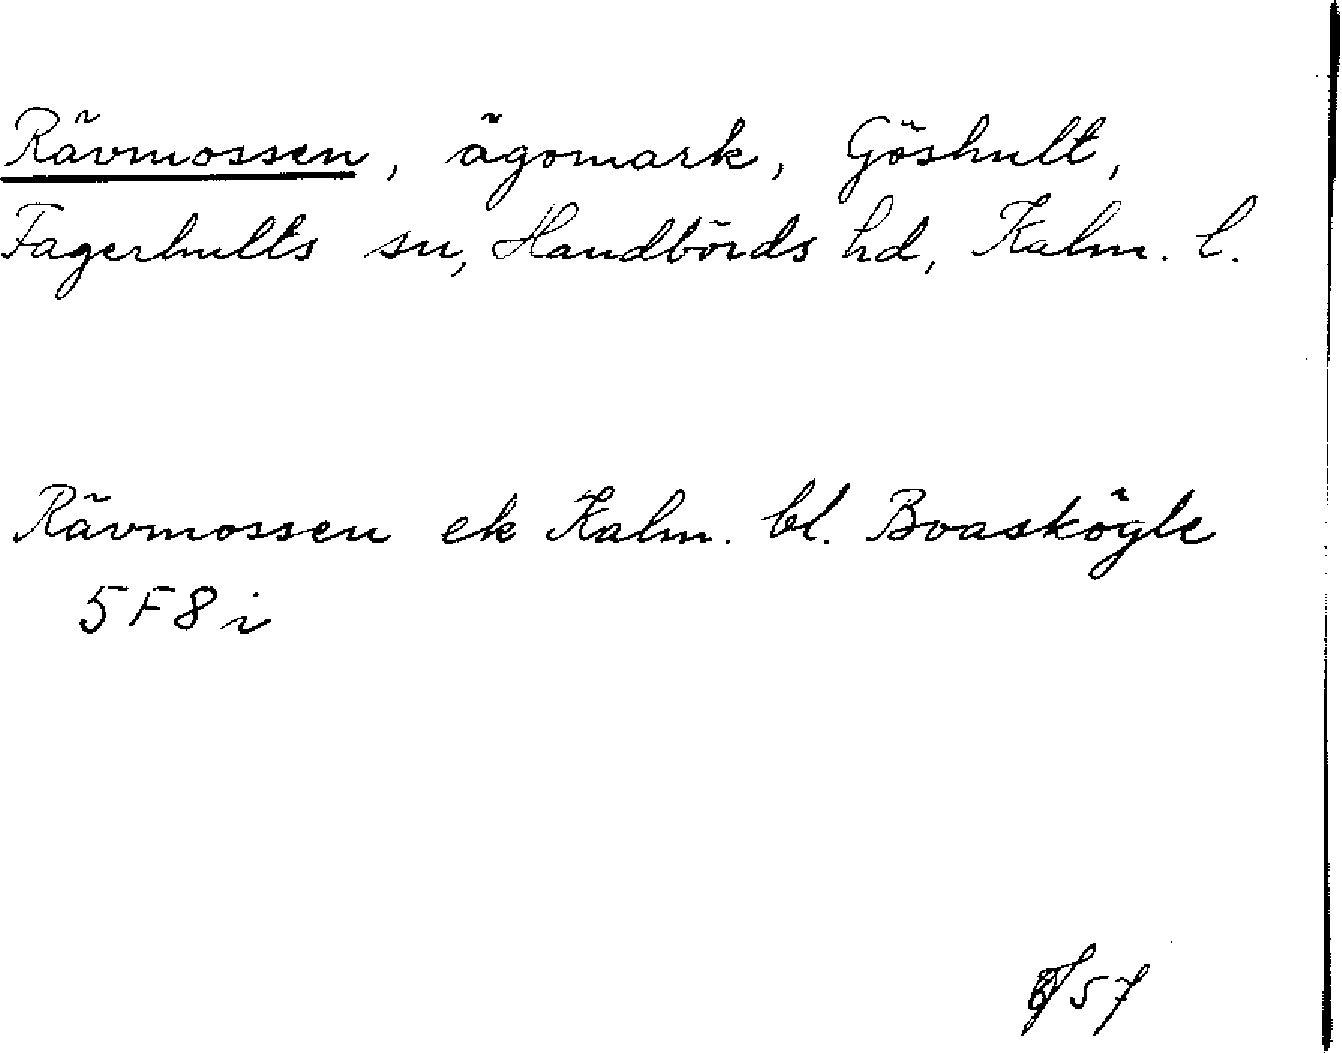 Rävmossen, ägomark, Göshult,
Fagerhults sn, Handbörds hd, Kalm. l.
Rävmossen ek Kalm. bl. Boaskögle
5F8i
57